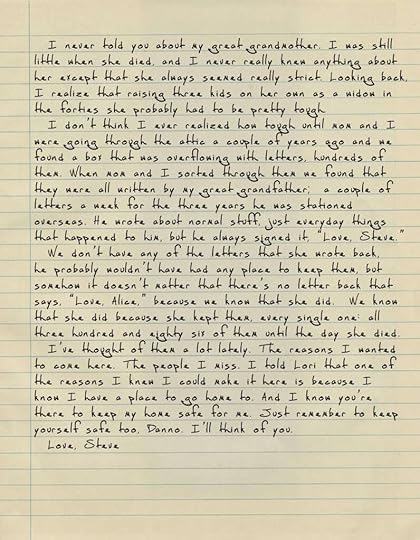 I never told you about my great grandmother. I was still
little when she died, and I never really knew anything about
her except that she always seemed really strict. Looking back,
I realize that raising three kids on her own as a widow in
the forties she probably had to be pretty tough
I don't think I ever realized how tough until mom and I
were going through the attic a couple of years ago and we
found a box that was overflowing with letters, hundreds of
them. When mom and I sorted through them we found that
they were all written by my great grandfather; a couple of
letters a week for the three years he was stationed
overseas. He wrote about normal stuff, just everyday things
that happened to him, but he always signed it, "Love, Steve."
We don't have any of the letters that she wrote back,
he probably wouldn't have had any place to keep them, but
somehow it doesn't matter that there's no letter back that
says, "Love, Alice," because we know that she did. We know
that she did because she kept them, every single one: all
three hundred and eighty six of them until the day she died.
I've thought of them a lot lately. The reasons I wanted
to come here. The people I miss. I told Lori that one of
the reasons I knew I could make it here is because I
know I have a place to go home to. And I know you're
there to keep my home safe for me. Just remember to keep
yourself safe too, Danno. I'll think of you.
Love, Steve